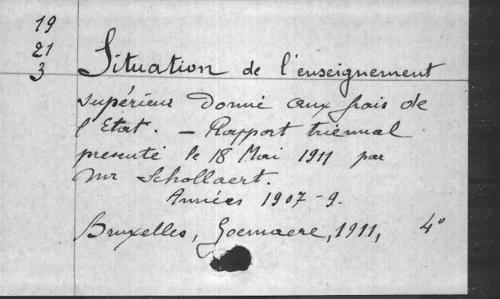 19
21
3
Situation de l'enseignement
supérieur donné aux frais de
l'Etat. — Rapport triennal
presenté le 18 Mai 1911 par
Mr Schollaert.
Années 1907-9.
Bruxelles, Goemaere, 1911, 4°